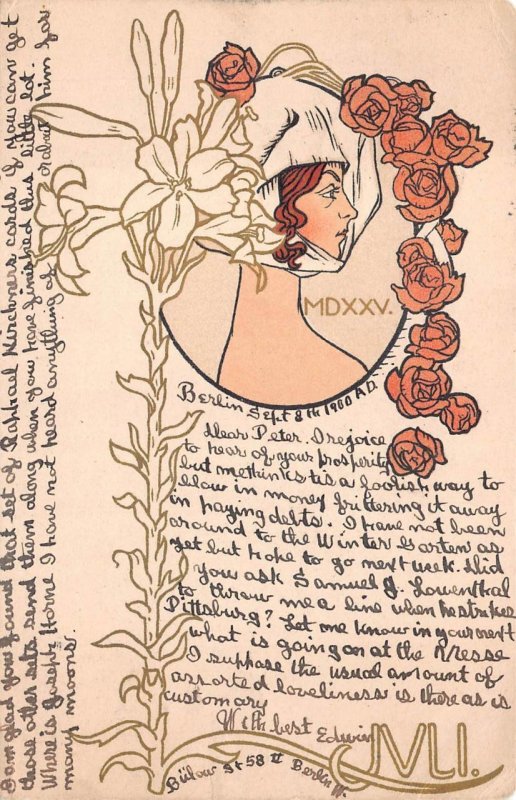 MDXXV.
Berlin Sept 8th 1900 A.D.
Dear Peter. I rejoice
to hear of your prosperity
but methinks tis a foolish way to
blow in money frittering it away
in paying debts. I have not been
around to the Winter Garten as
yet but hope to go next week. Did
you ask Samuel J. Lowenthal
to throw me a line when he strikes
Pittsburg? Let me know in your next
what is going on at the Messe
I suppose the usual amount of
assorted loveliness is there as is
customary
With best Edwin
Bülow St 58 II Berlin W.
JVLI.
I am glad you found that set of Raphael Kirchners cards if you can get
those other sets send them along when you have finished this little lot.
Where is Joseph Horne I have not heard anything of or about him for
many moons.